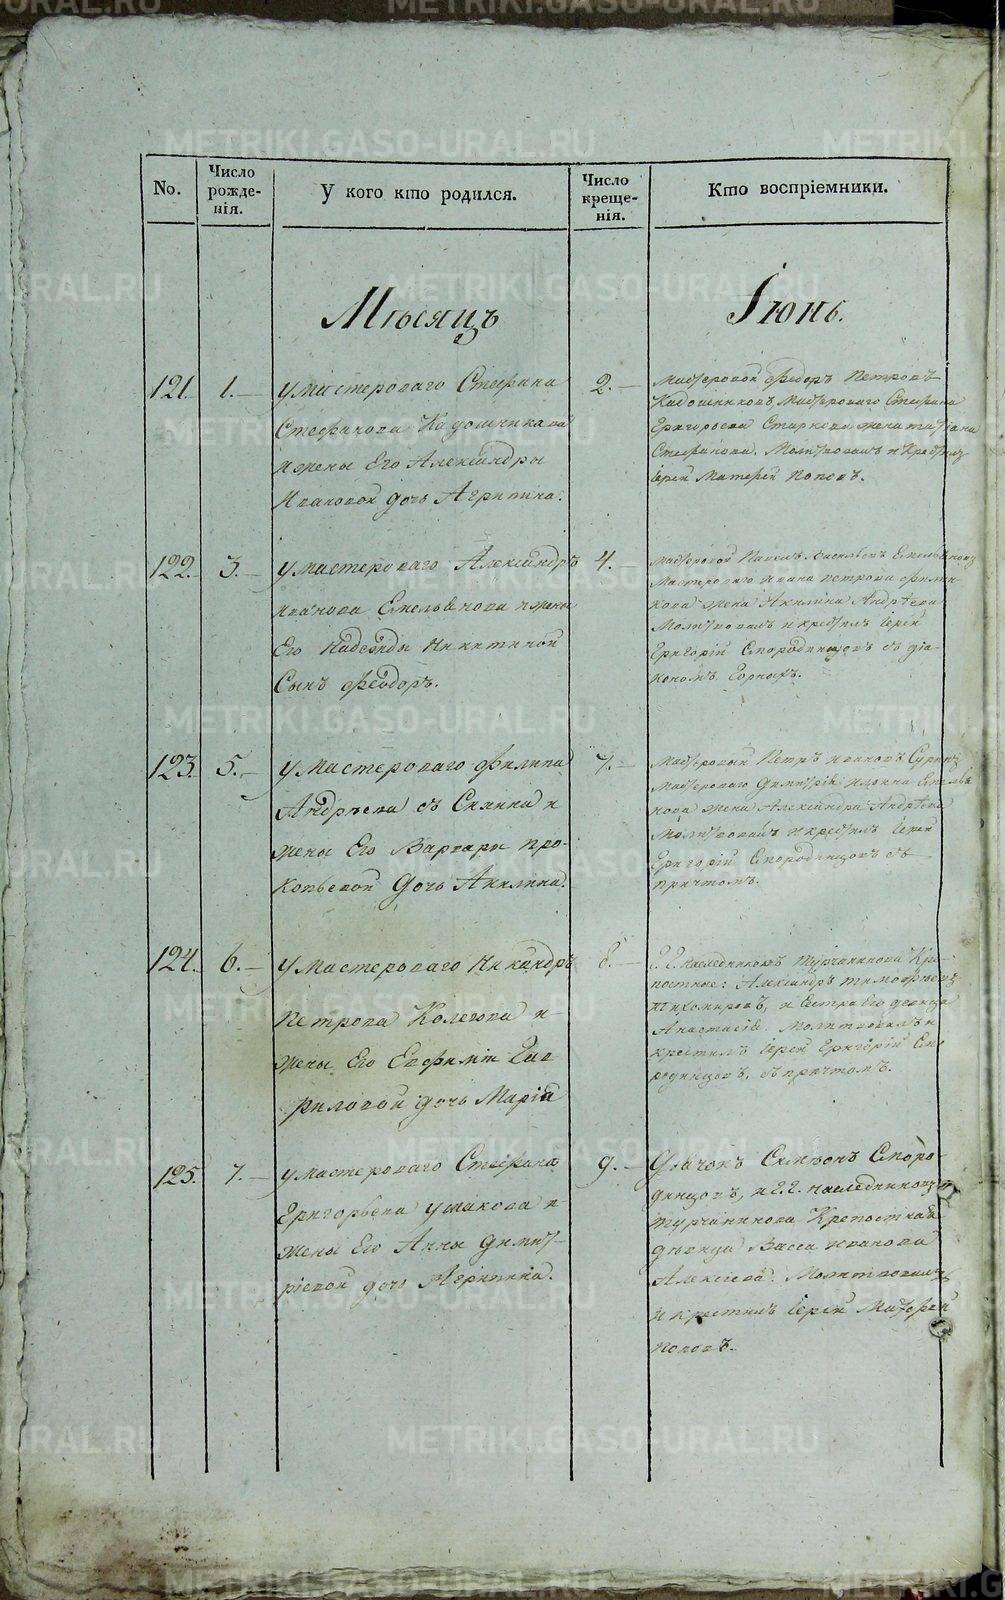 METRIKI.GASO-URAL.RU
No.
Число рожде-нія.
У кого кто родился.
Число креще-нія.
Кто воспріемники.
Мѣсяцъ
Іюнь.
121.
1.
у Мастероваго Стефана
Стефанова Кадошникова
и жены Его Александры
Ивановой дочь Агрипина.
2.
Мастеровой Федоръ Петровъ
Кадошниковъ Мастероваго Стефана
Григорьева Старкова жена Татіана
Стефанова. Молитвовалъ и Крестилъ
Іерей Матфей Поповъ.
122.
3.
у Мастероваго Александръ
Иванова Емельянова и жены
Его Надежды Никитиной
Сынъ Феодоръ.
4.
Мастеровой Павелъ Васильевъ Емельяновъ
Мастероваго Ивана Петрова
жена Акилина Андрѣева
Молитвовалъ и крестилъ Іерей
Григорій Смородинцовъ съ діа-
кономъ Горныхъ.
123.
5.
у Мастероваго Филипа
Андрѣева съ Скинина и
жены Его Варвары Про-
копьевой Дочь Акилина.
7.
Мастеровый Петръ Ивановъ
Мастероваго Димитрія Емелья
нова жена Александра Андрѣева
Молитвовалъ и крестилъ Іерей
Григорій Смородинцовъ съ
причтомъ.
124.
6.
у Мастероваго Никандръ
Петрова Колегова и
жены Его Евфиміи Гав
риловой дочь Марія
8.
Г. Г. наследниковъ Турчанинова Кре
постные: Александръ Тимофѣевъ
Тихомировъ, и Сестра Его девица
Анастасія. Молитвовалъ и
крестилъ Іерей Григорій Смо
родинцовъ, съ причтомъ.
125.
7.
у Мастероваго Стефана
Григорьева Ушакова и
жены Его Анны Димит-
ріевой дочь Агрипина.
9.
Дьячокъ Симеонъ Сморо-
динцовъ, и Г. Г. наследниковъ
Турчанинова Крепостная
дѣвица Васса Иванова
Алексіева. Молитвовалъ
и крестилъ Іерей Матфей
Поповъ.